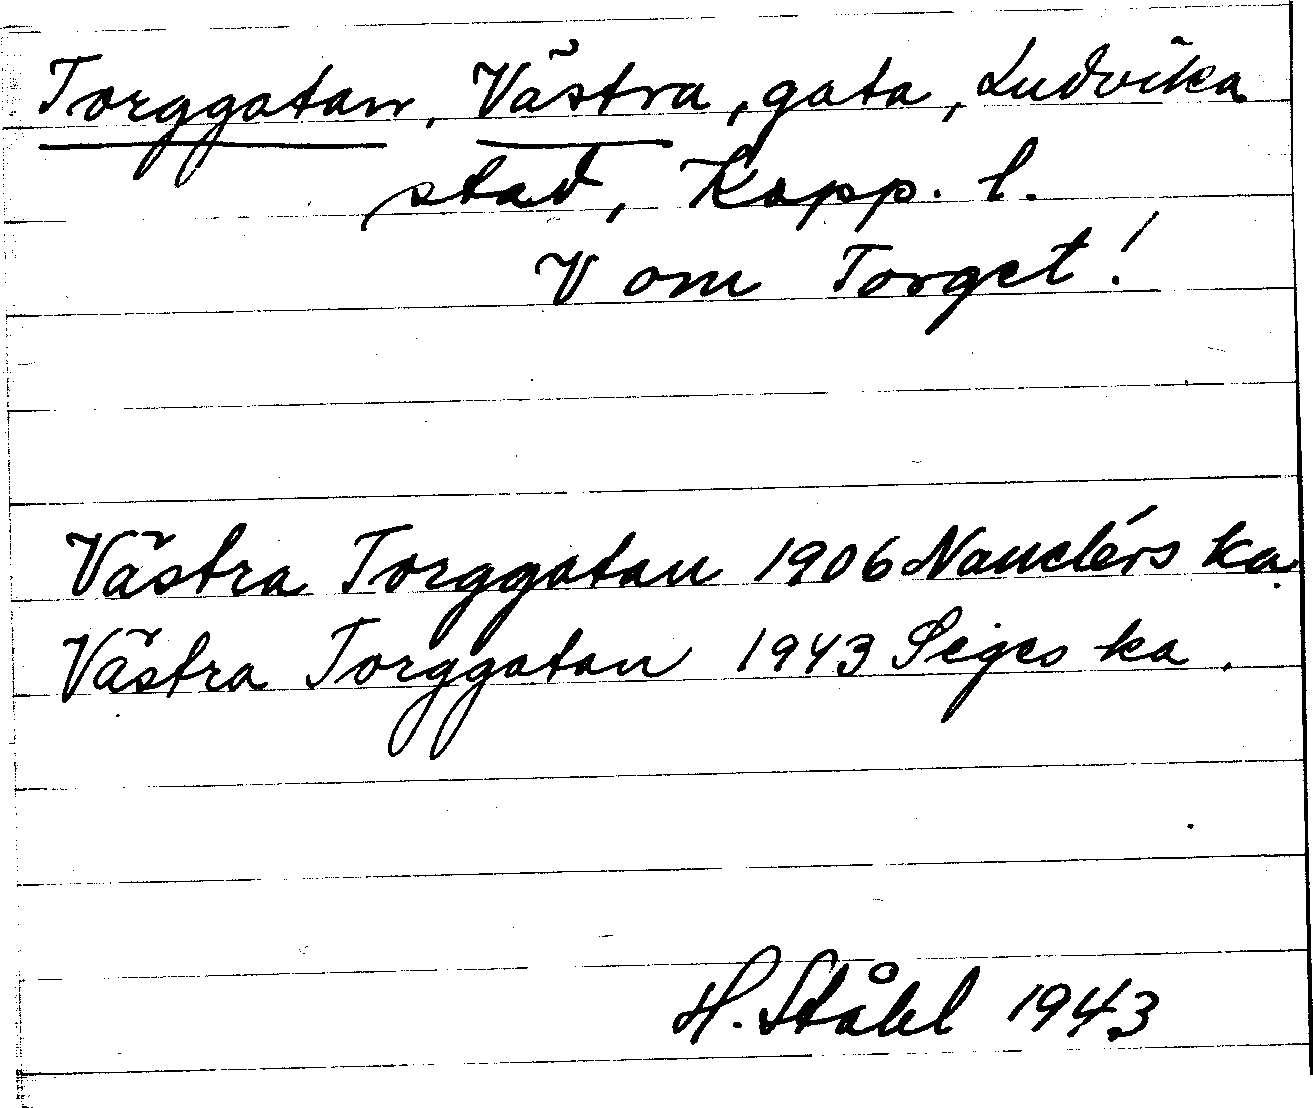 Torggatan, Västra, gata, Ludvika
stad, Kopp. l.
V om Torget!
Västra Torggatan 1906 Nauclérs ka.
Västra Torggatan 1943 Seges ka.
H. Ståhl 1943